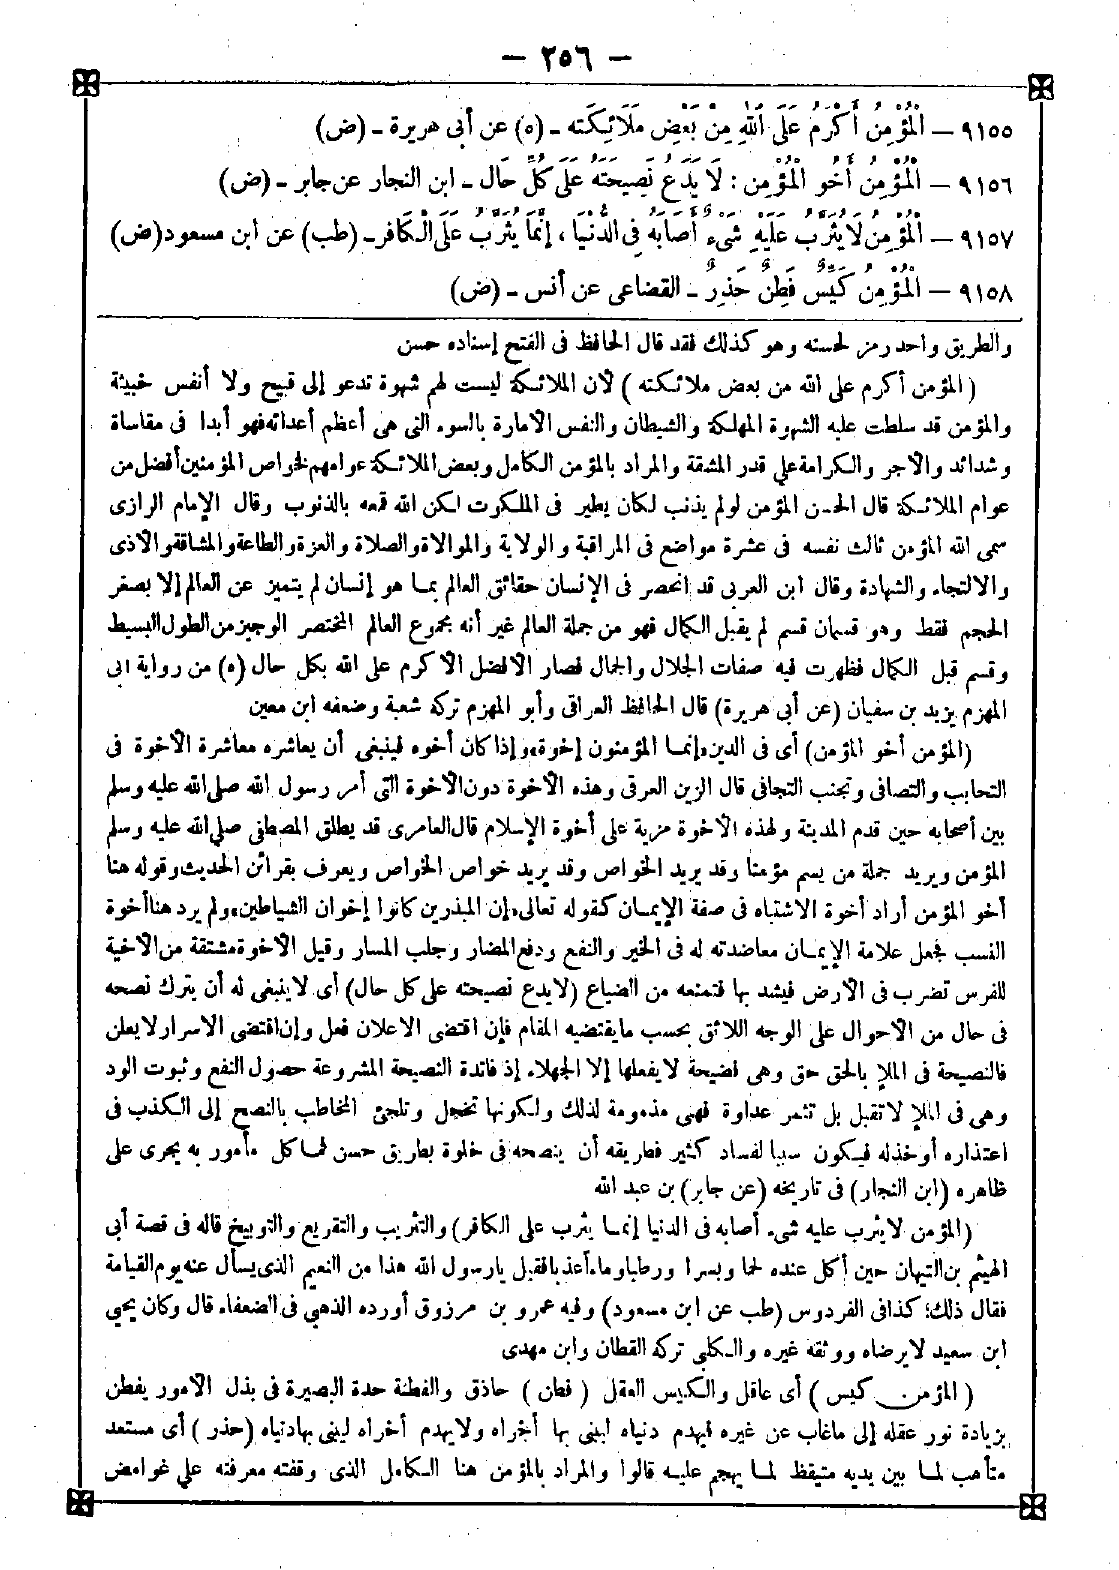 — ٢٥٦ —
٩١٥٥ — الْمُؤْمِنُ أَكْرَمُ عَلَى اللهِ مِنْ بَعْضِ مَلَائِكَتِه - (ه) عن أبى هريرة - (ض)
٩١٥٦ — الْمُؤْمِنُ أَخُو الْمُؤْمِنِ: لَا يَدَعُ نَصِيحَتَهُ عَلَى كُلِّ حَالٍ - ابن النجار عن جابر - (ض)
٩١٥٧ — الْمُؤْمِنُ لَا يُثَرَّبُ عَلَيْهِ شَىْءٌ أَصَابَهُ فِى الدُّنْيَا، إِنَّمَا يُثَرَّبُ عَلَى الْكَافِرِ - (طب) عن ابن مسعود (ض)
٩١٥٨ — الْمُؤْمِنُ كَيِّسٌ فَطِنٌ حَذِرٌ - القضاعى عن أنس - (ض)
والطريق واحد رمز لحسنه وهو كذلك فقد قال الحافظ فى الفتح إسناده حسن
(المؤمن أكرم على الله من بعض ملائكته) لأن الملائكة ليست لهم شهوة تدعو إلى قبيح ولا أنفس خبيثة
والمؤمن قد سلطت عليه الشهوة المهلكة والشيطان والنفس الأمارة بالسوء التى هى أعظم أعدائه فهو أبدا فى مقاساة
وشدائد والأجر والكرامة على قدر المشقة والمراد بالمؤمن الكامل وبعض الملائكة عوامهم لخواص المؤمنين أفضل من
عوام الملائكة قال الحسن المؤمن لو لم يذنب لكان يطير فى الملكوت لكن الله قمعه بالذنوب وقال الإمام الرازى
سمى الله المؤمن ثالث نفسه فى عشرة مواضع فى المراقبة والولاية والموالاة والصلاة والعزة والطاعة والمشاقة والأذى
والالتجاء والشهادة وقال ابن العربى قد انحصر فى الإنسان حقائق العالم بما هو إنسان لم يتميز عن العالم إلا بصغر
الحجم فقط وهو قسمان قسم لم يقبل الكمال فهو من جملة العالم غير أنه مجموع العالم المختصر الوجيز من الطول البسيط
وقسم قبل الكمال فظهرت فيه صفات الجلال والجمال فصار الأفضل الأكرم على الله بكل حال (ه) من رواية ابى
المهزم يزيد بن سفيان (عن أبى هريرة) قال الحافظ العراقى وأبو المهزم تركه شعبة وضعفه ابن معين
(المؤمن أخو المؤمن) أى فى الدين «إنما المؤمنون إخوة» وإذا كان أخوه فينبغى أن يعاشره معاشرة الأخوة فى
التحابب والتصافى وتجنب التجافى قال الزين العرقى وهذه الأخوة دون الأخوة التى أمر رسول الله صلى الله عليه وسلم
بين أصحابه حين قدم المدينة ولهذه الأخوة مزية على أخوة الإسلام قال العامرى قد يطلق المصطفى صلى الله عليه وسلم
المؤمن ويريد جملة من يسم مؤمنا وقد يريد الخواص وقد يريد خواص الخواص ويعرف بقرائن الحديث وقوله هنا
أخو المؤمن أراد أخوة الاشتباه فى صفة الإيمان كقوله تعالى «إن المبذرين كانوا إخوان الشياطين» ولم يرد هنا أخوة
النسب فجعل علامة الإيمان معاضدته له فى الخير والنفع ودفع المضار وجلب المسار وقيل الأخوة مشتقة من الأخية
للفرس تضرب فى الأرض فيشد بها فتمنعه من الضياع (لا يدع نصيحته على كل حال) أى لا ينبغى له أن يترك نصحه
فى حال من الأحوال على الوجه اللائق بحسب ما يقتضيه المقام فإن اقتضى الاعلان فعل وإن اقتضى الأسرار لا يعلن
فالنصيحة فى الملإ بالحق حق وهى فضيحة لا يفعلها إلا الجهلاء إذ فائدة النصيحة المشروعة حصول النفع وثبوت الود
وهى فى الملإ لا تقبل بل تثمر عداوة فهى مذمومة لذلك ولكونها تخجل وتلجئ المخاطب بالنصح إلى الكذب فى
اعتذاره أو خذله فيكون سببا لفساد كثير فطريقه أن ينصحه فى خلوة بطريق حسن فما كل مأمور به يجرى على
ظاهره (ابن النجار) فى تاريخه (عن جابر) بن عبد الله
(المؤمن لا يثرب عليه شىء أصابه فى الدنيا إنما يثرب على الكافر) والتثريب والتقريع والتوبيخ قاله فى قصة أبى
الهيثم بن التيهان حين أكل عنده لحما وبسرا ورطبا وماء أعذبا فقيل يا رسول الله هذا من النعيم الذى يسأل عنه يوم القيامة
فقال ذلك؛ كذا فى الفردوس (طب عن ابن مسعود) وفيه عمرو بن مرزوق أورده الذهبى فى الضعفاء قال وكان يحيى
ابن سعيد لا يرضاه ووثقه غيره والكلبى تركه القطان وابن مهدى
(المؤمن كيس) أى عاقل والكيس العقل (فطن) حاذق والفطنة حدة البصيرة فى بذل الأمور يفطن
بزيادة نور عقله إلى ما غاب عن غيره فيهدم دنياه ليبنى بها أخراه ولا يهدم أخراه ليبنى بها دنياه (حذر) أى مستعد
متأهب لما بين يديه متيقظ لما يهجم عليه قالوا والمراد بالمؤمن هنا الكامل الذى وقفته معرفته على غوامض